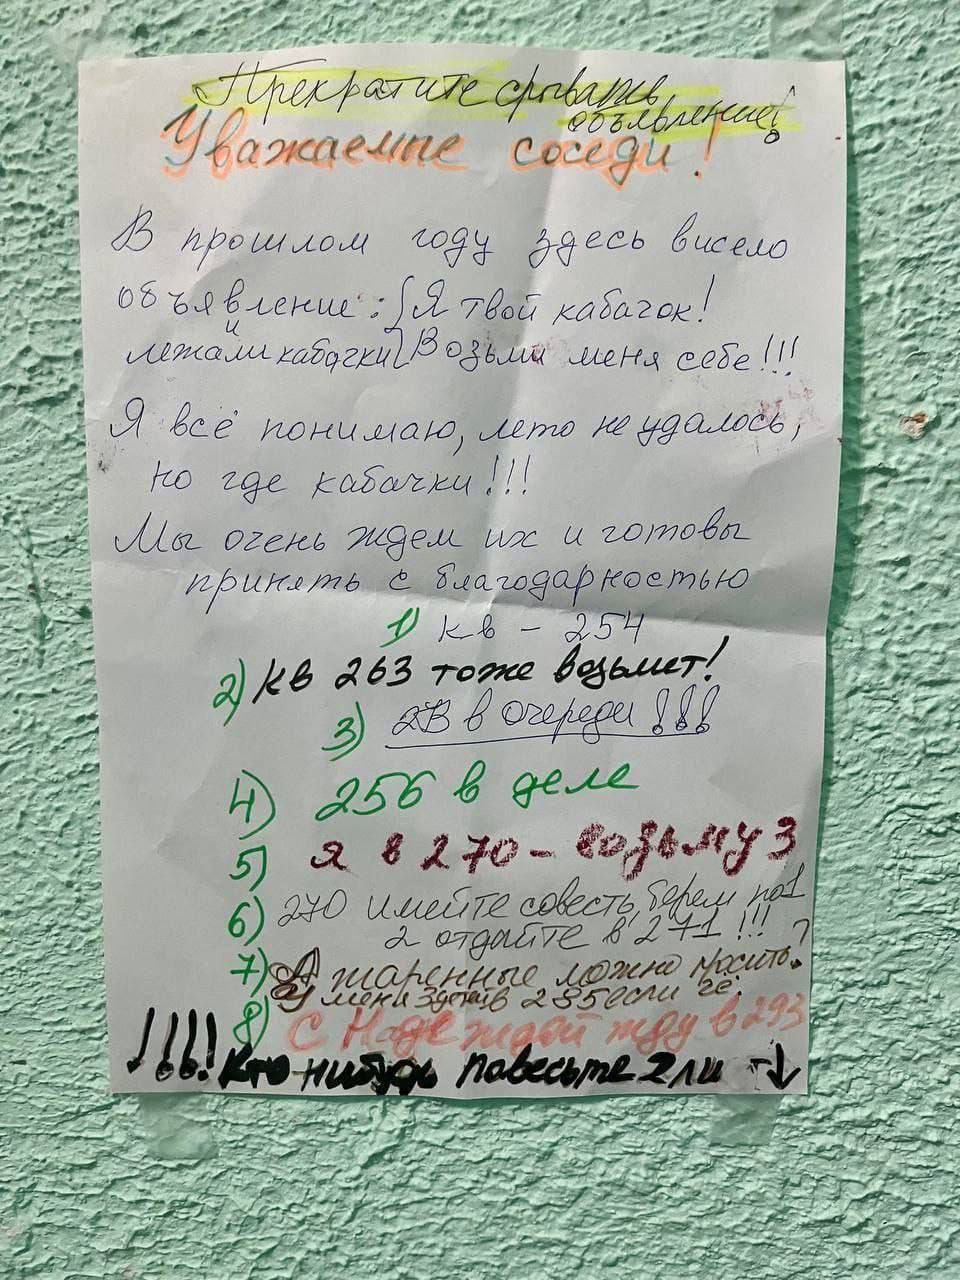 Прекратите срывать
объявление!
Уважаемые соседи!
В прошлом году здесь висело
объявление: Я твой кабачок!
и
лежали кабачки Возьми меня себе!!!
Я всё понимаю, лето не удалось,
но где кабачки!!!
Мы очень ждем их и готовы
принять с благодарностью
1) кв - 254
2) кв 263 тоже возьмет!
3) 2В в очереди!!!
4) 256 в деле
5) Я в 270 - возьму 3
6) 270 имейте совесть, берем по 1
2 отдайте в 271!!!
7) А жаренные можно просить?
У меня здетей в 235 если чё.
8) С Надеждой жду в 293
!!!! Кто нибудь повесьте 2 ли